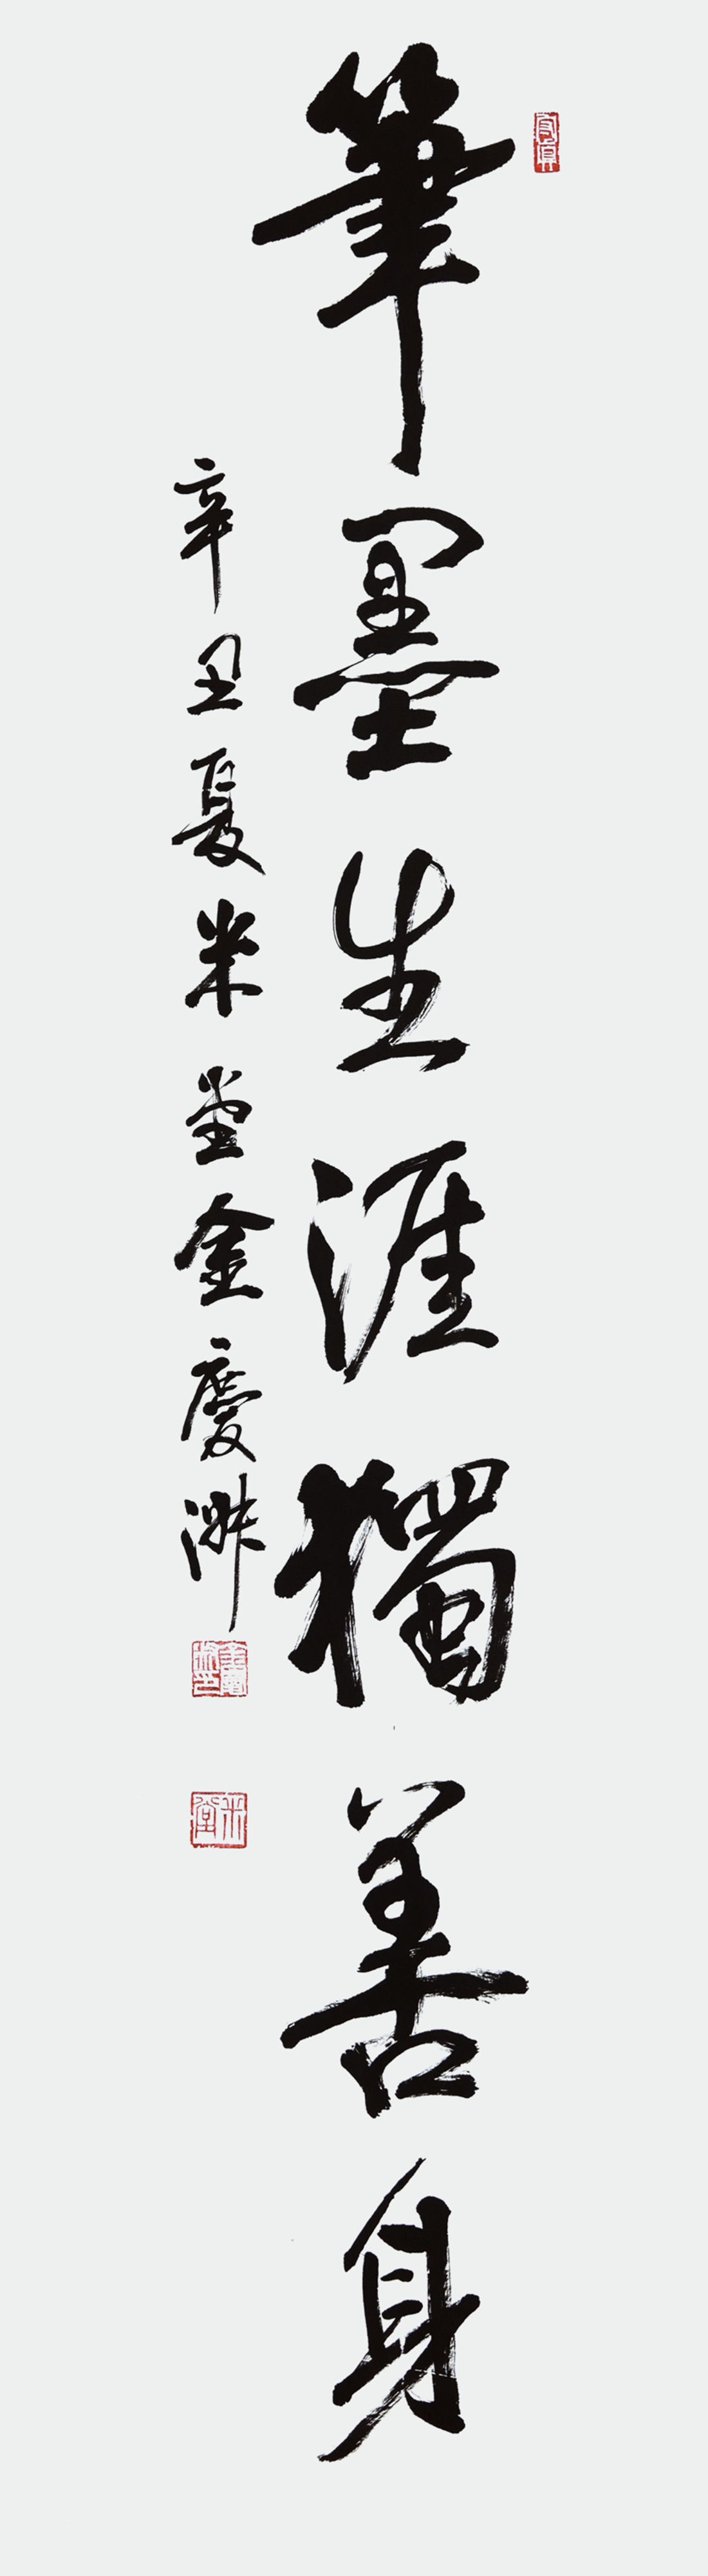 筆墨生涯獨善身
辛丑夏米堂金慶
米堂